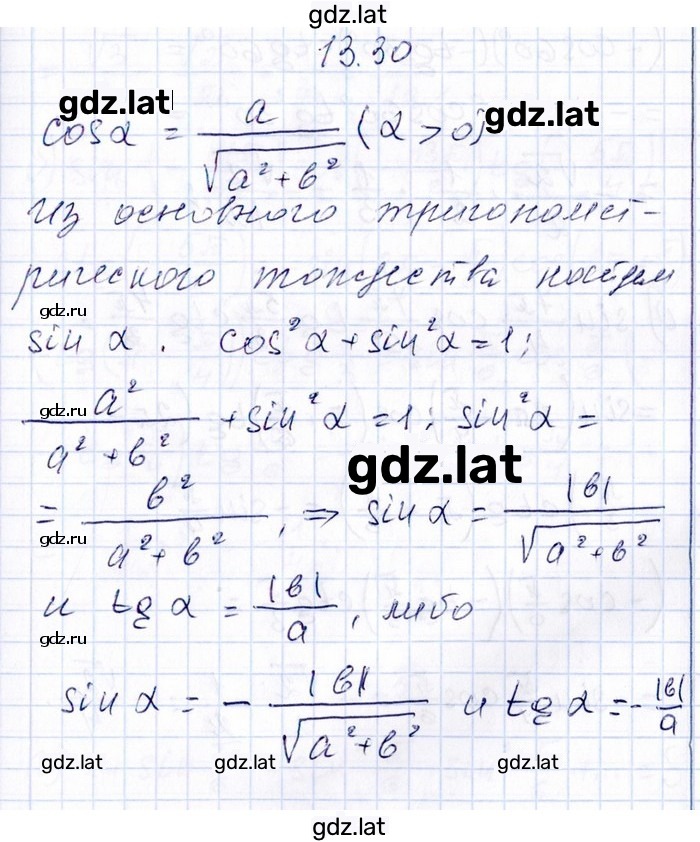 gdz.lat
13.30
gdz.lat
cosα = a/√(a²+b²) (α > 0) gdz.lat
из основного тригономет-
рического тождества найдем
gdz.ru
sin α . cos²α + sin²α = 1;
gdz.ru
a²/(a²+b²) + sin²α = 1; sin²α =
gdz.lat
= b²/(a²+b²), => sin α = |b|/√(a²+b²)
gdz.ru
и tg α = |b|/a, либо
gdz.ru
sin α = - |b|/√(a²+b²) и tg α = - |b|/a
gdz.lat gdz.lat gdz.lat
gdz.lat